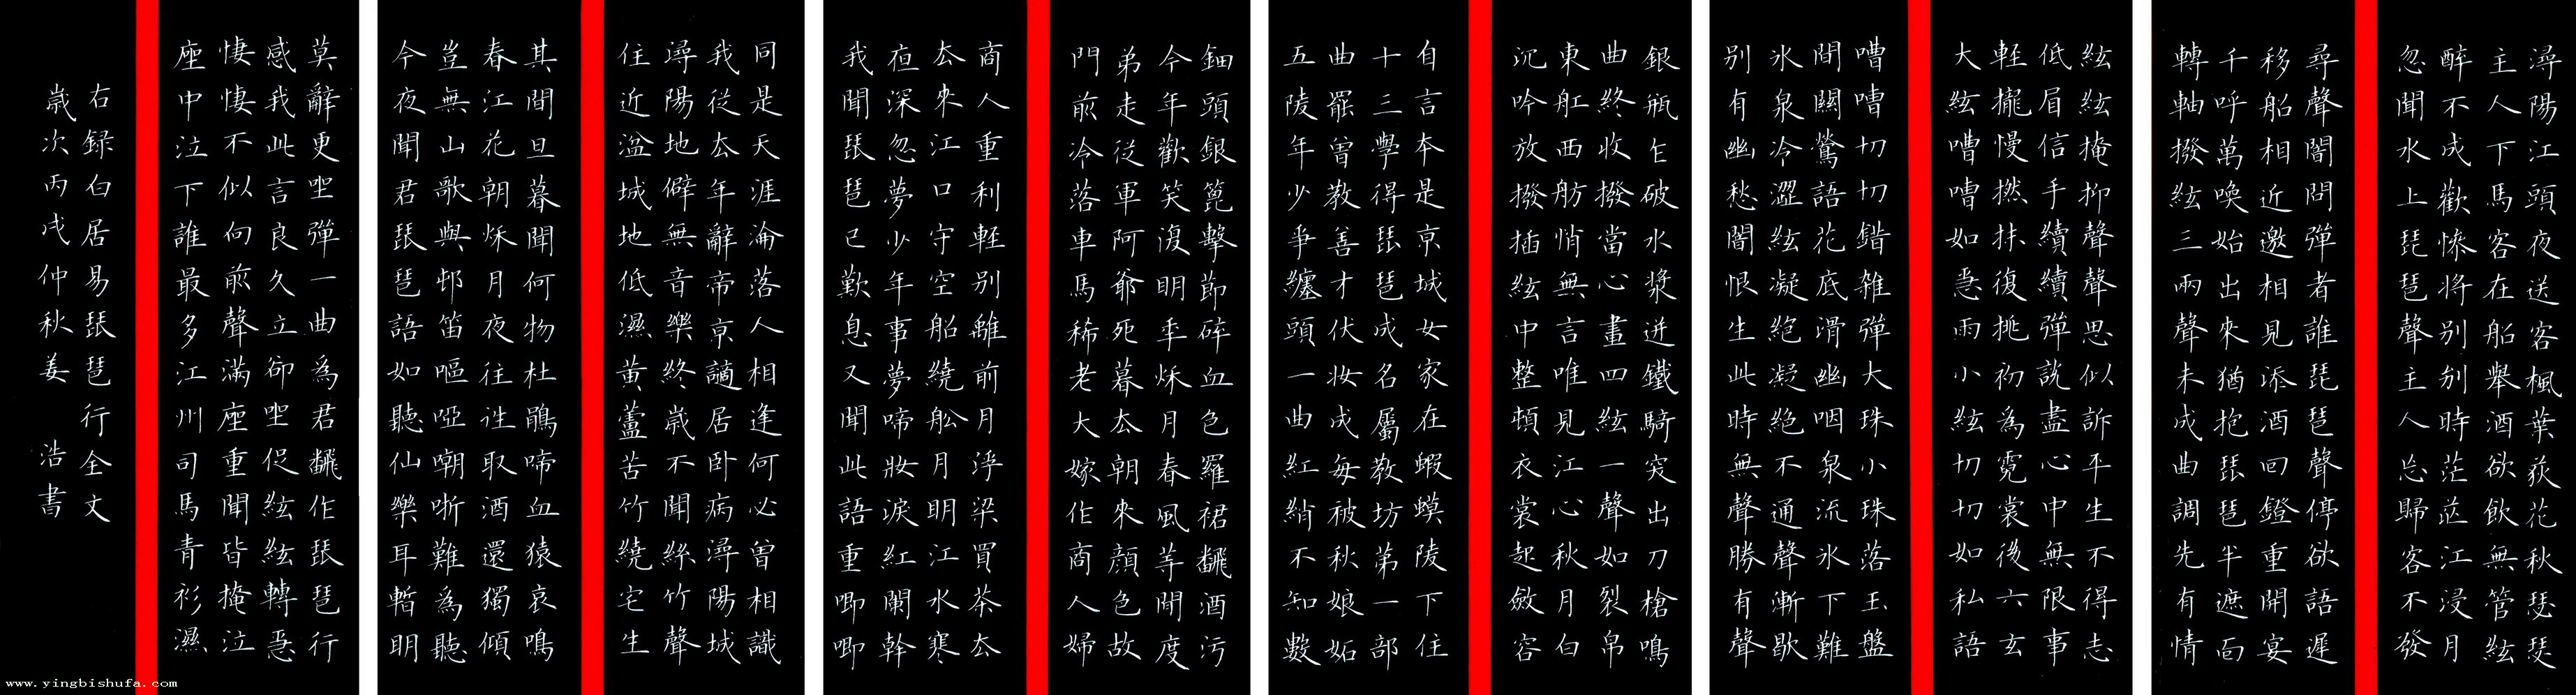 潯陽江頭夜送客楓葉荻花秋瑟瑟
主人下馬客在船舉酒欲飲無管絃
醉不成歡慘將別別時茫茫江浸月
忽聞水上琵琶聲主人忘歸客不發
尋聲闇問彈者誰琵琶聲停欲語遲
移船相近邀相見添酒回鐙重開宴
千呼萬喚始出來猶抱琵琶半遮面
轉軸撥絃三兩聲未成曲調先有情
絃絃掩抑聲聲思似訴平生不得志
低眉信手續續彈說盡心中無限事
輕攏慢撚抹復挑初為霓裳後六玄
大絃嘈嘈如急雨小絃切切如私語
嘈嘈切切錯雜彈大珠小珠落玉盤
間關鶯語花底滑幽咽泉流氷下難
氷泉冷澀絃凝絕凝絕不通聲漸歇
別有幽愁闇恨生此時無聲勝有聲
銀瓶乍破水漿迸鐵騎突出刀槍鳴
曲終收撥當心畫四絃一聲如裂帛
東舡西舫悄無言唯見江心秋月白
沉吟放撥插絃中整頓衣裳起斂容
自言本是京城女家在蝦蟆陵下住
十三學得琵琶成名屬教坊第一部
曲罷曾教善才伏妝成每被秋娘妬
五陵年少爭纏頭一曲紅綃不知數
鈿頭銀篦擊節碎血色羅裙翻酒污
今年歡笑復明年秋月春風等閒度
弟走從軍阿爺死暮去朝來顏色故
門前冷落車馬稀老大嫁作商人婦
商人重利輕別離前月浮梁買茶去
去來江口守空船繞舩月明江水寒
夜深忽夢少年事夢啼妝淚紅闌幹
我聞琵琶已歎息又聞此語重唧唧
同是天涯淪落人相逢何必曾相識
我從去年辭帝京謫居卧病潯陽城
潯陽地僻無音樂終歲不聞絲竹聲
住近湓城地低濕黃蘆苦竹繞宅生
其間旦暮聞何物杜鵑啼血猿哀鳴
春江花朝秋月夜往往取酒還獨傾
豈無山歌與邨笛嘔啞嘲哳難為聽
今夜聞君琵琶語如聽仙樂耳暫明
莫辭更坐彈一曲為君翻作琵琶行
感我此言良久立卻坐促絃絃轉急
悽悽不似向前聲滿座重聞皆掩泣
座中泣下誰最多江州司馬青衫濕
右録白居易琵琶行全文
歲次丙戌仲秋姜 浩書
www.yingbishufa.com